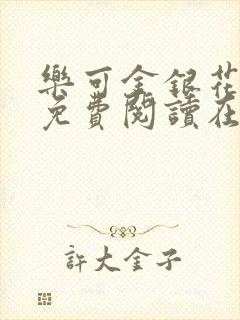 樂可金銀花
免費閱讀在
許大金子